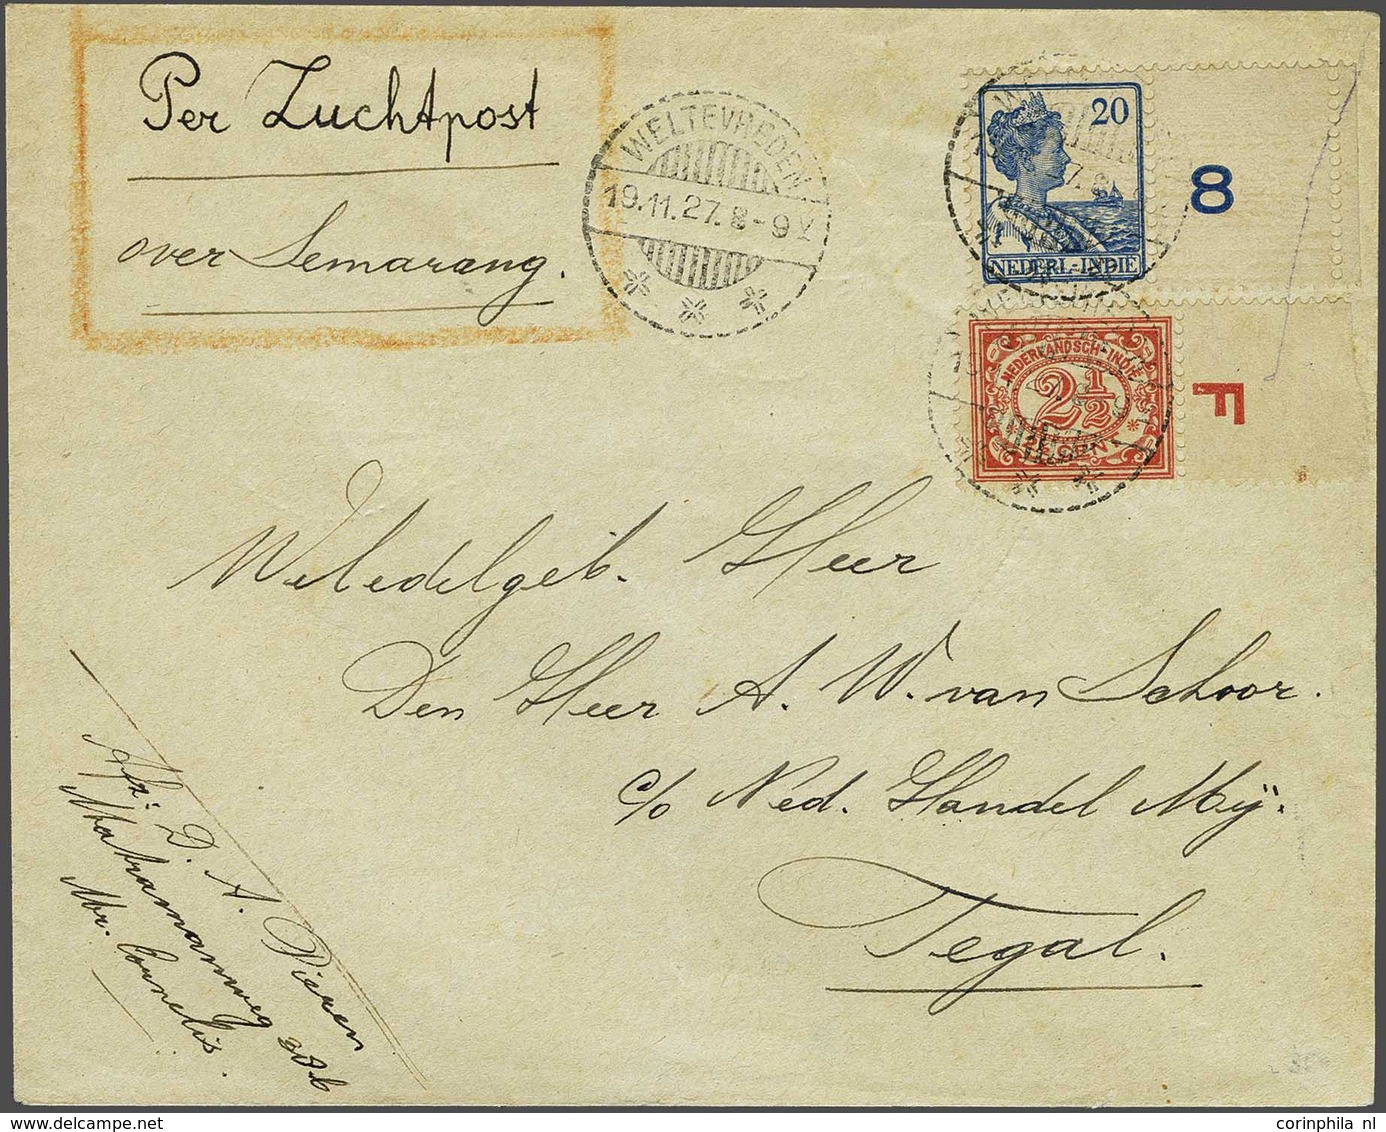 Per Luchtpost
over Semarang.
WELTEVREDEN
19.11.27.8-9V
20
NEDERL.-INDIE
8
NEDERLANDSCH-INDIË
2½
CENT
F
Weledelgeb. Heer
Den Heer A. W. van Schoor.
c/o Ned. Handel Mij.
Tegal.
Afz: D. A. Pieren
Matramanweg
Mr. Cornelis.
corinphila nl